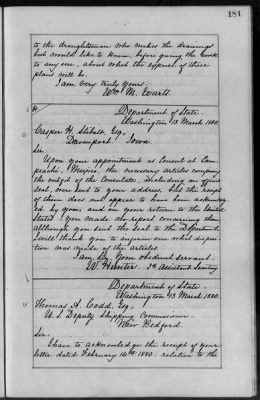 181
to the draughtsman who makes the drawings
but would like to know, before giving the work
to any one, about what the expense of these
plans will be.
I am, very truly yours,
Wm M. Evarts.
Department of State.
Washington 13 March 1880.
Esq.
Davenport. Iowa
Sir.
Upon your appointment as Consul at Cam-
peachi, Mexico, the necessary articles compos-
ing the outfit of the Consulate, including an official
seal, were sent to your address, but the receipt
of them does not appear to have been acknowledg-
ed by you, and on your return to the United
States you made no report concerning them
although you sent the seal to the Department.
I will thank you to inform me what dispo-
sition was made of the articles.
I am, Sir, Your obedient servant.
W. Hunter 2d Assistant Secretary
Department of State.
Washington 13 March 1880.
Thomas A. Codd, Esq.,
U. S. Deputy Shipping Commissioner.
New Bedford.
Sir.
I have to acknowledge the receipt of your
letter dated February 14th 1880 relative to the